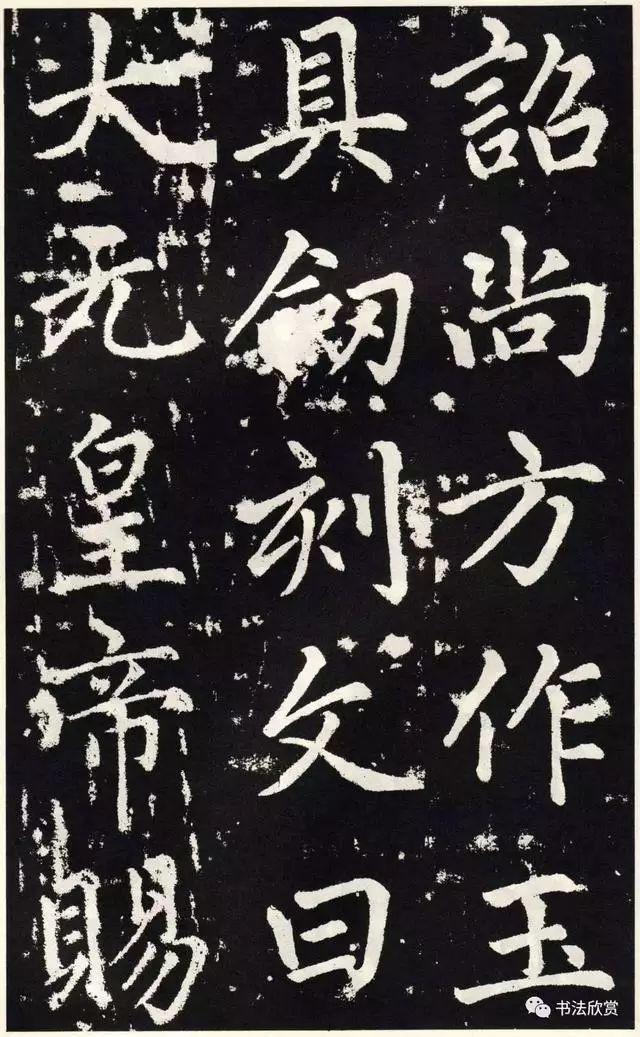 詔尚方作玉
具劒刻文曰
大元皇帝賜
书法欣赏